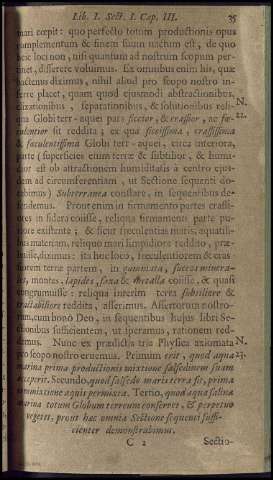 Lib. I. Sect. I. Cap. III. 35
mari cœpit: quo perfecto totum productionis opus
complementum & finem suum nactum est, de quo
hoc loco non, nisi quantum ad nostrum scopum per-
tinet, disserere voluimus. Ex omnibus enim his, quæ
hactenus diximus, nihil aliud pro scopo nostro in-
ferre placet, quam quod ejusmodi abstractionibus,
separationibus, & solutionibus reli-
N.
qua Globi terr-aquei pars siccior, & crassior, ac fæ-
22.
culentior sit reddita; ex qua siccissima, crassissima
& fæculentissima Globi terr-aquei, circa interiora,
parte (superficies enim terræ & subtilior, & humi-
dior est ob attractionem humiditatis à centro ejus-
dem ad circumferentiam, ut Sectione sequenti do-
cebimus) Subterranea constare, in sequentibus de-
fendemus. Prout enim in firmamento partes crassi-
ores in sidera coiisse, reliqua firmamenti parte pu-
riore existente; & sicut fæculentias maris, aquatili-
bus materiam, reliquo mari limpidiore reddito, præ-
buisse, diximus: ita huc loco, fæculentiorem & cras-
siorem terræ partem, in succos minera-
les, montes, lapides, saxa & metalla coiisse, & quasi
congrumuisse: reliqua interim terra subtiliore &
tractabiliore reddita, asseramus. Assertorum nostro-
rum, cum bono Deo, in sequentibus hujus libri Se-
ctionibus sufficientem, ut speramus, rationem red-
demus. Nunc ex prædictis tria Physica axiomata
N.
pro scopo nostro eruemus. Primum erit, quod aqua
23.
marina prima productionis mixtione salsedinem suam
acceperit. Secundo, quod salsedo maris terra sit, prima
commixtione aquis permixta. Tertio, quod aqua salina
marina totum Globum terreum conservet, & perpetuo
vegetet, prout hæc omnia Sectione sequenti suffi-
cienter demonstrabimus.
C 2 Sectio-